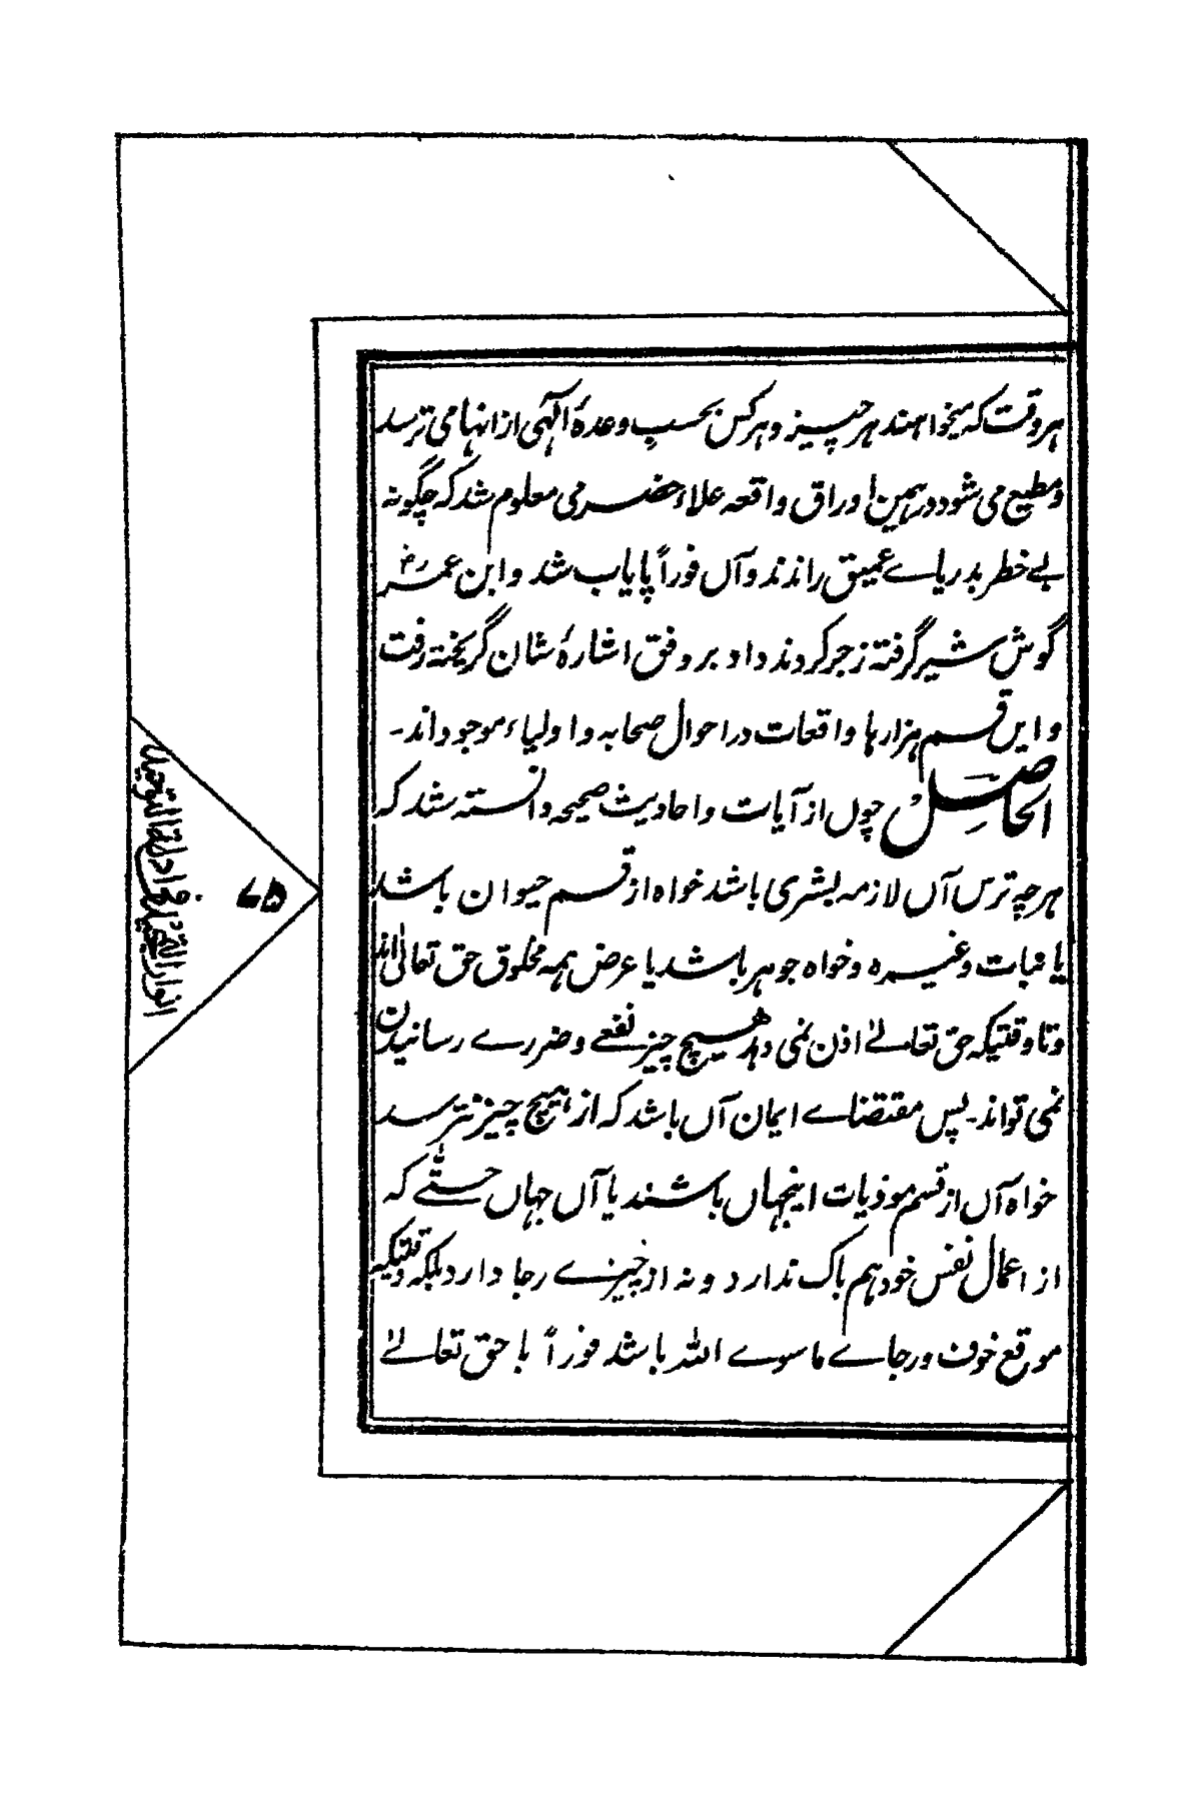 هر وقت که میخواهند هر چیز و هر کس بحسب وعدۀ الٰهی از انها می ترسد
و مطیع می شود در همین اوراق واقعه علاء حضرمی معلوم شد که چگونه
بے خطر بدریاے عمیق راندند و آں فوراً پایاب شد و ابن عمر رض
گوش شیر گرفته زجر کردند و او بر وفق اشارۀ شان گریخته رفت
و ایں قسم هزارها واقعات در احوال صحابه و اولیاء موجود اند۔
الحاصل چوں از آیات و احادیث صحیحه دانسته شد که
هر چه ترس آں لازمه بشری باشد خواه از قسم حیوان باشد
یا نبات و غیره و خواه جوهر باشد یا عرض همه مخلوق حق تعالیٰ اند
و تا وقتیکه حق تعالےٰ اذن نمی دهد هیچ چیز نفعے و ضررے رسانیدن
نمی تواند۔ پس مقتضاے ایمان آں باشد که از هیچ چیز نترسد
خواه آں از قسم موذیات اینجهاں باشند یا آں جهاں حتّےٰ که
از اعمال نفس خود هم باک ندارد و نه از چیزے رجا دارد بلکه وقتیکه
موقع خوف و رجاے ما سوے الله باشد فوراً با حق تعالےٰ
۷۵